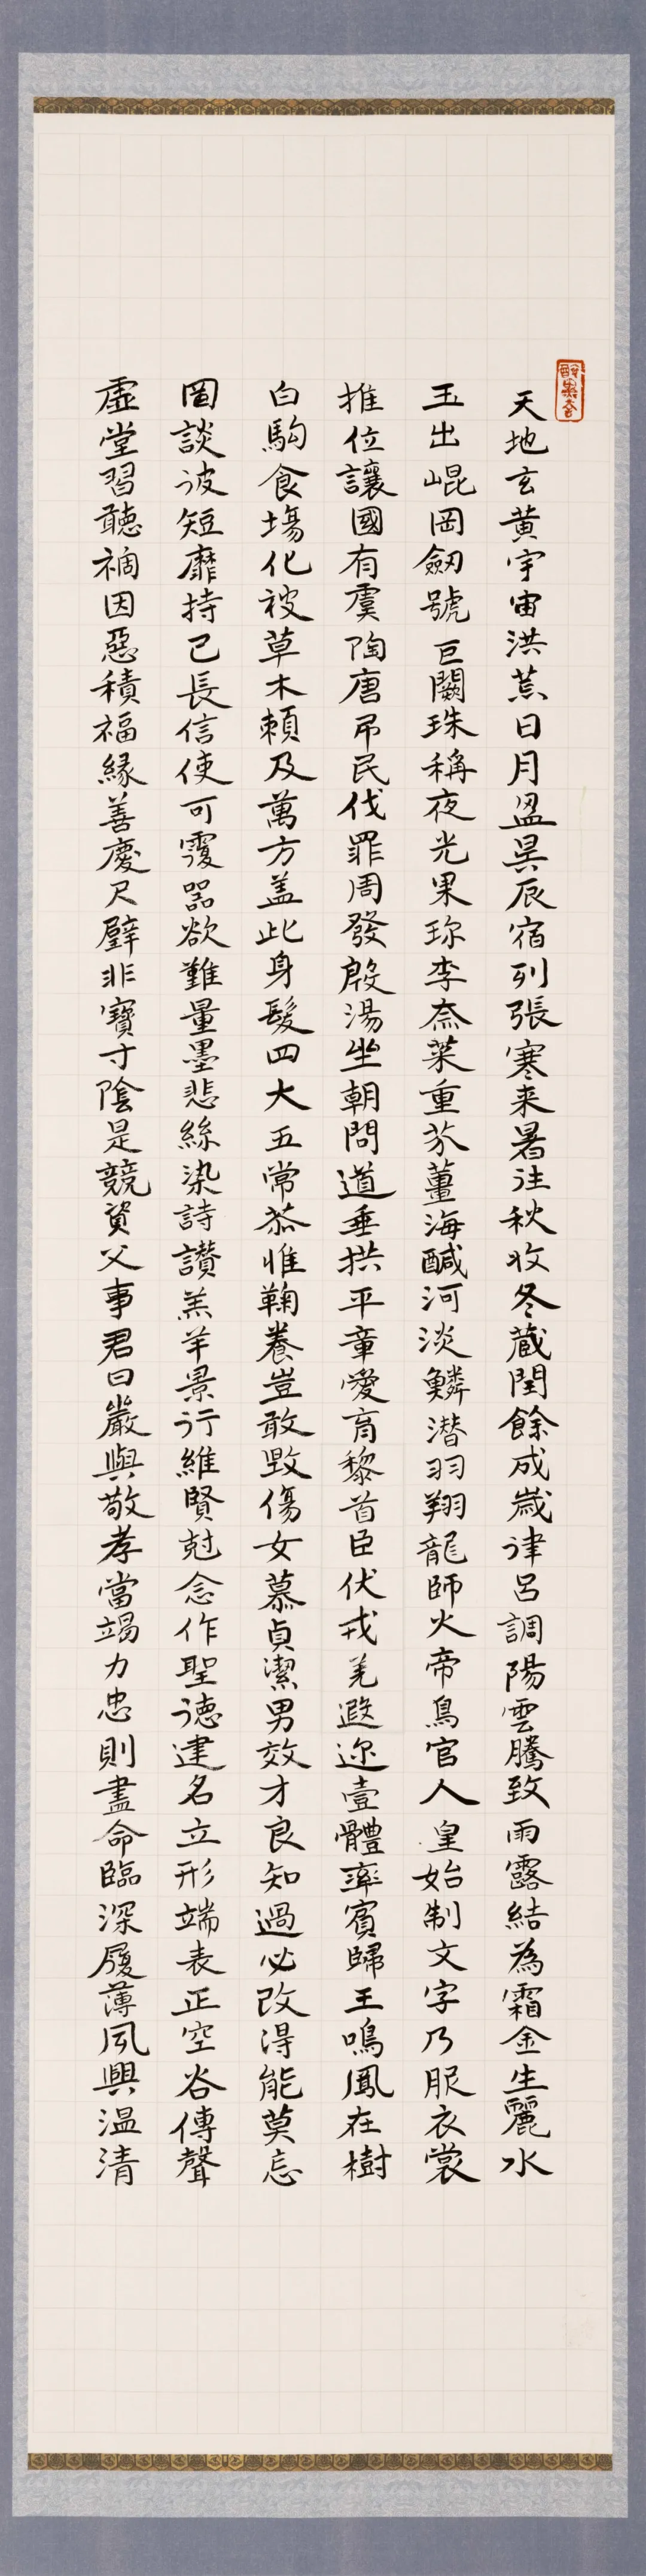 天地玄黄宇宙洪荒日月盈昃辰宿列張寒来暑往秋收冬蔵閏餘成歳律呂調陽雲騰致雨露結為霜金生麗水
玉出崐岡劔號巨闕珠稱夜光果珎李柰菜重芥薑海鹹河淡鱗潜羽翔龍師火帝鳥官人皇始制文字乃服衣裳
推位讓國有虞陶唐弔民伐罪周發殷湯坐朝問道垂拱平章愛育黎首臣伏戎羌遐迩壹體率賓歸王鳴鳳在樹
白駒食場化被草木頼及萬方盖此身髮四大五常恭惟鞠養豈敢毀傷女慕貞潔男效才良知過必改得能莫忘
罔談彼短靡持己長信使可覆器欲難量墨悲絲染詩讃羔羊景行維賢剋念作聖徳建名立形端表正空谷傳聲
虚堂習聴禍因惡積福縁善慶尺璧非寶寸陰是競資父事君曰嚴與敬孝當竭力忠則盡命臨深履薄夙興温清